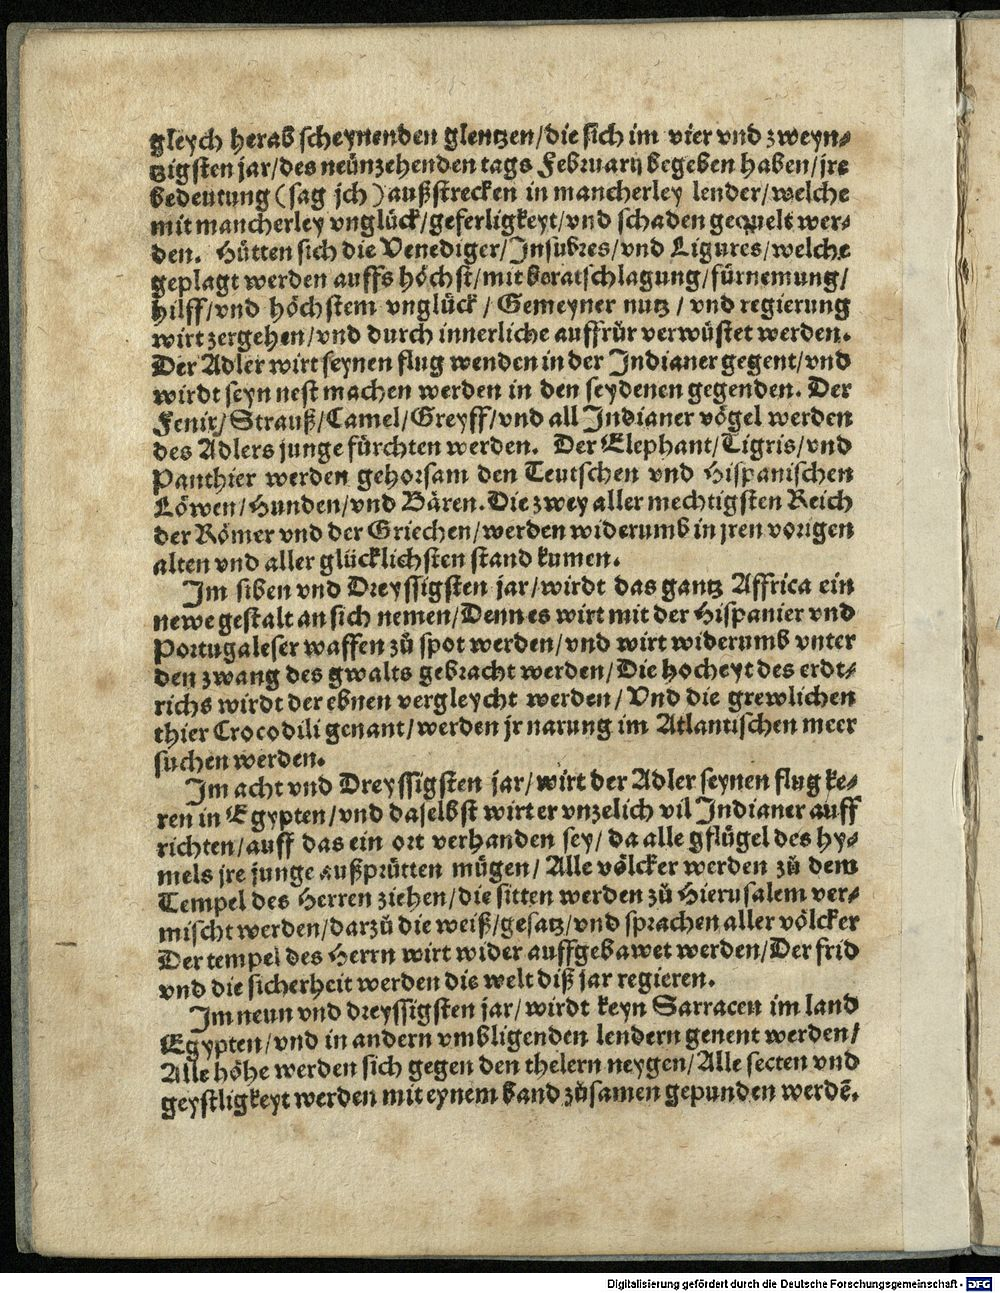 gleych herab scheynenden glentzen/die sich im vier vnd zweyn-
tzigsten jar/des neünzehenden tags Februarij begeben haben/jre
bedeutung (sag jch) außstrecken in mancherley lender/welche
mit mancherley vnglück/geferligkeyt/vnd schaden gequelt wer-
den. Hütten sich die Venediger/Insubres/vnd Ligures/welche
geplagt werden auffs höchst/mit beratschlagung/fürnemung/
hilff/vnd höchstem vnglück/ Gemeyner nutz/ vnd regierung
wirt zergehen/vnd durch innerliche auffrür verwüstet werden.
Der Adler wirt seynen flug wenden in der Indianer gegent/vnd
wirdt seyn nest machen werden in den seydenen gegenden. Der
Fenix/Strauß/Camel/Greyff/vnd all Indianer vögel werden
des Adlers junge fürchten werden. Der Elephant/Tigris/vnd
Panthier werden gehorsam den Teutschen vnd Hispanischen
Löwen/Hunden/vnd Bären. Die zwey aller mechtigsten Reich
der Römer vnd der Griechen/werden widerumb in jren vorigen
alten vnd aller glücklichsten stand kumen.
Im siben vnd Dreyssigsten jar/wirdt das gantz Affrica ein
newe gestalt an sich nemen/Denn es wirt mit der Hispanier vnd
Portugaleser waffen zů spot werden/vnd wirt widerumb vnter
den zwang des gwalts gebracht werden/Die hocheyt des erdt-
richs wirdt der ebnen vergleycht werden/ Vnd die grewlichen
thier Crocodili genant/werden jr narung im Atlantischen meer
suchen werden.
Im acht vnd Dreyssigsten jar/wirt der Adler seynen flug ke-
ren in Egypten/vnd daselbst wirt er vnzelich vil Indianer auff
richten/auff das ein ort verhanden sey/ da alle gflügel des hy-
mels jre junge außprütten mügen/ Alle völcker werden zů dem
Tempel des Herren ziehen/die sitten werden zů Hierusalem ver-
mischt werden/darzů die weiß/gesatz/vnd sprachen aller völcker
Der tempel des Herrn wirt wider auffgebawet werden/Der frid
vnd die sicherheit werden die welt diß jar regieren.
Im neun vnd dreyssigsten jar/ wirdt keyn Sarracen im land
Egypten/vnd in andern vmbligenden lendern genent werden/
Alle höhe werden sich gegen den thelern neygen/Alle secten vnd
geystligkeyt werden mit eynem band zůsamen gepunden werdē.
Digitalisierung gefördert durch die Deutsche Forschungsgemeinschaft - DFG